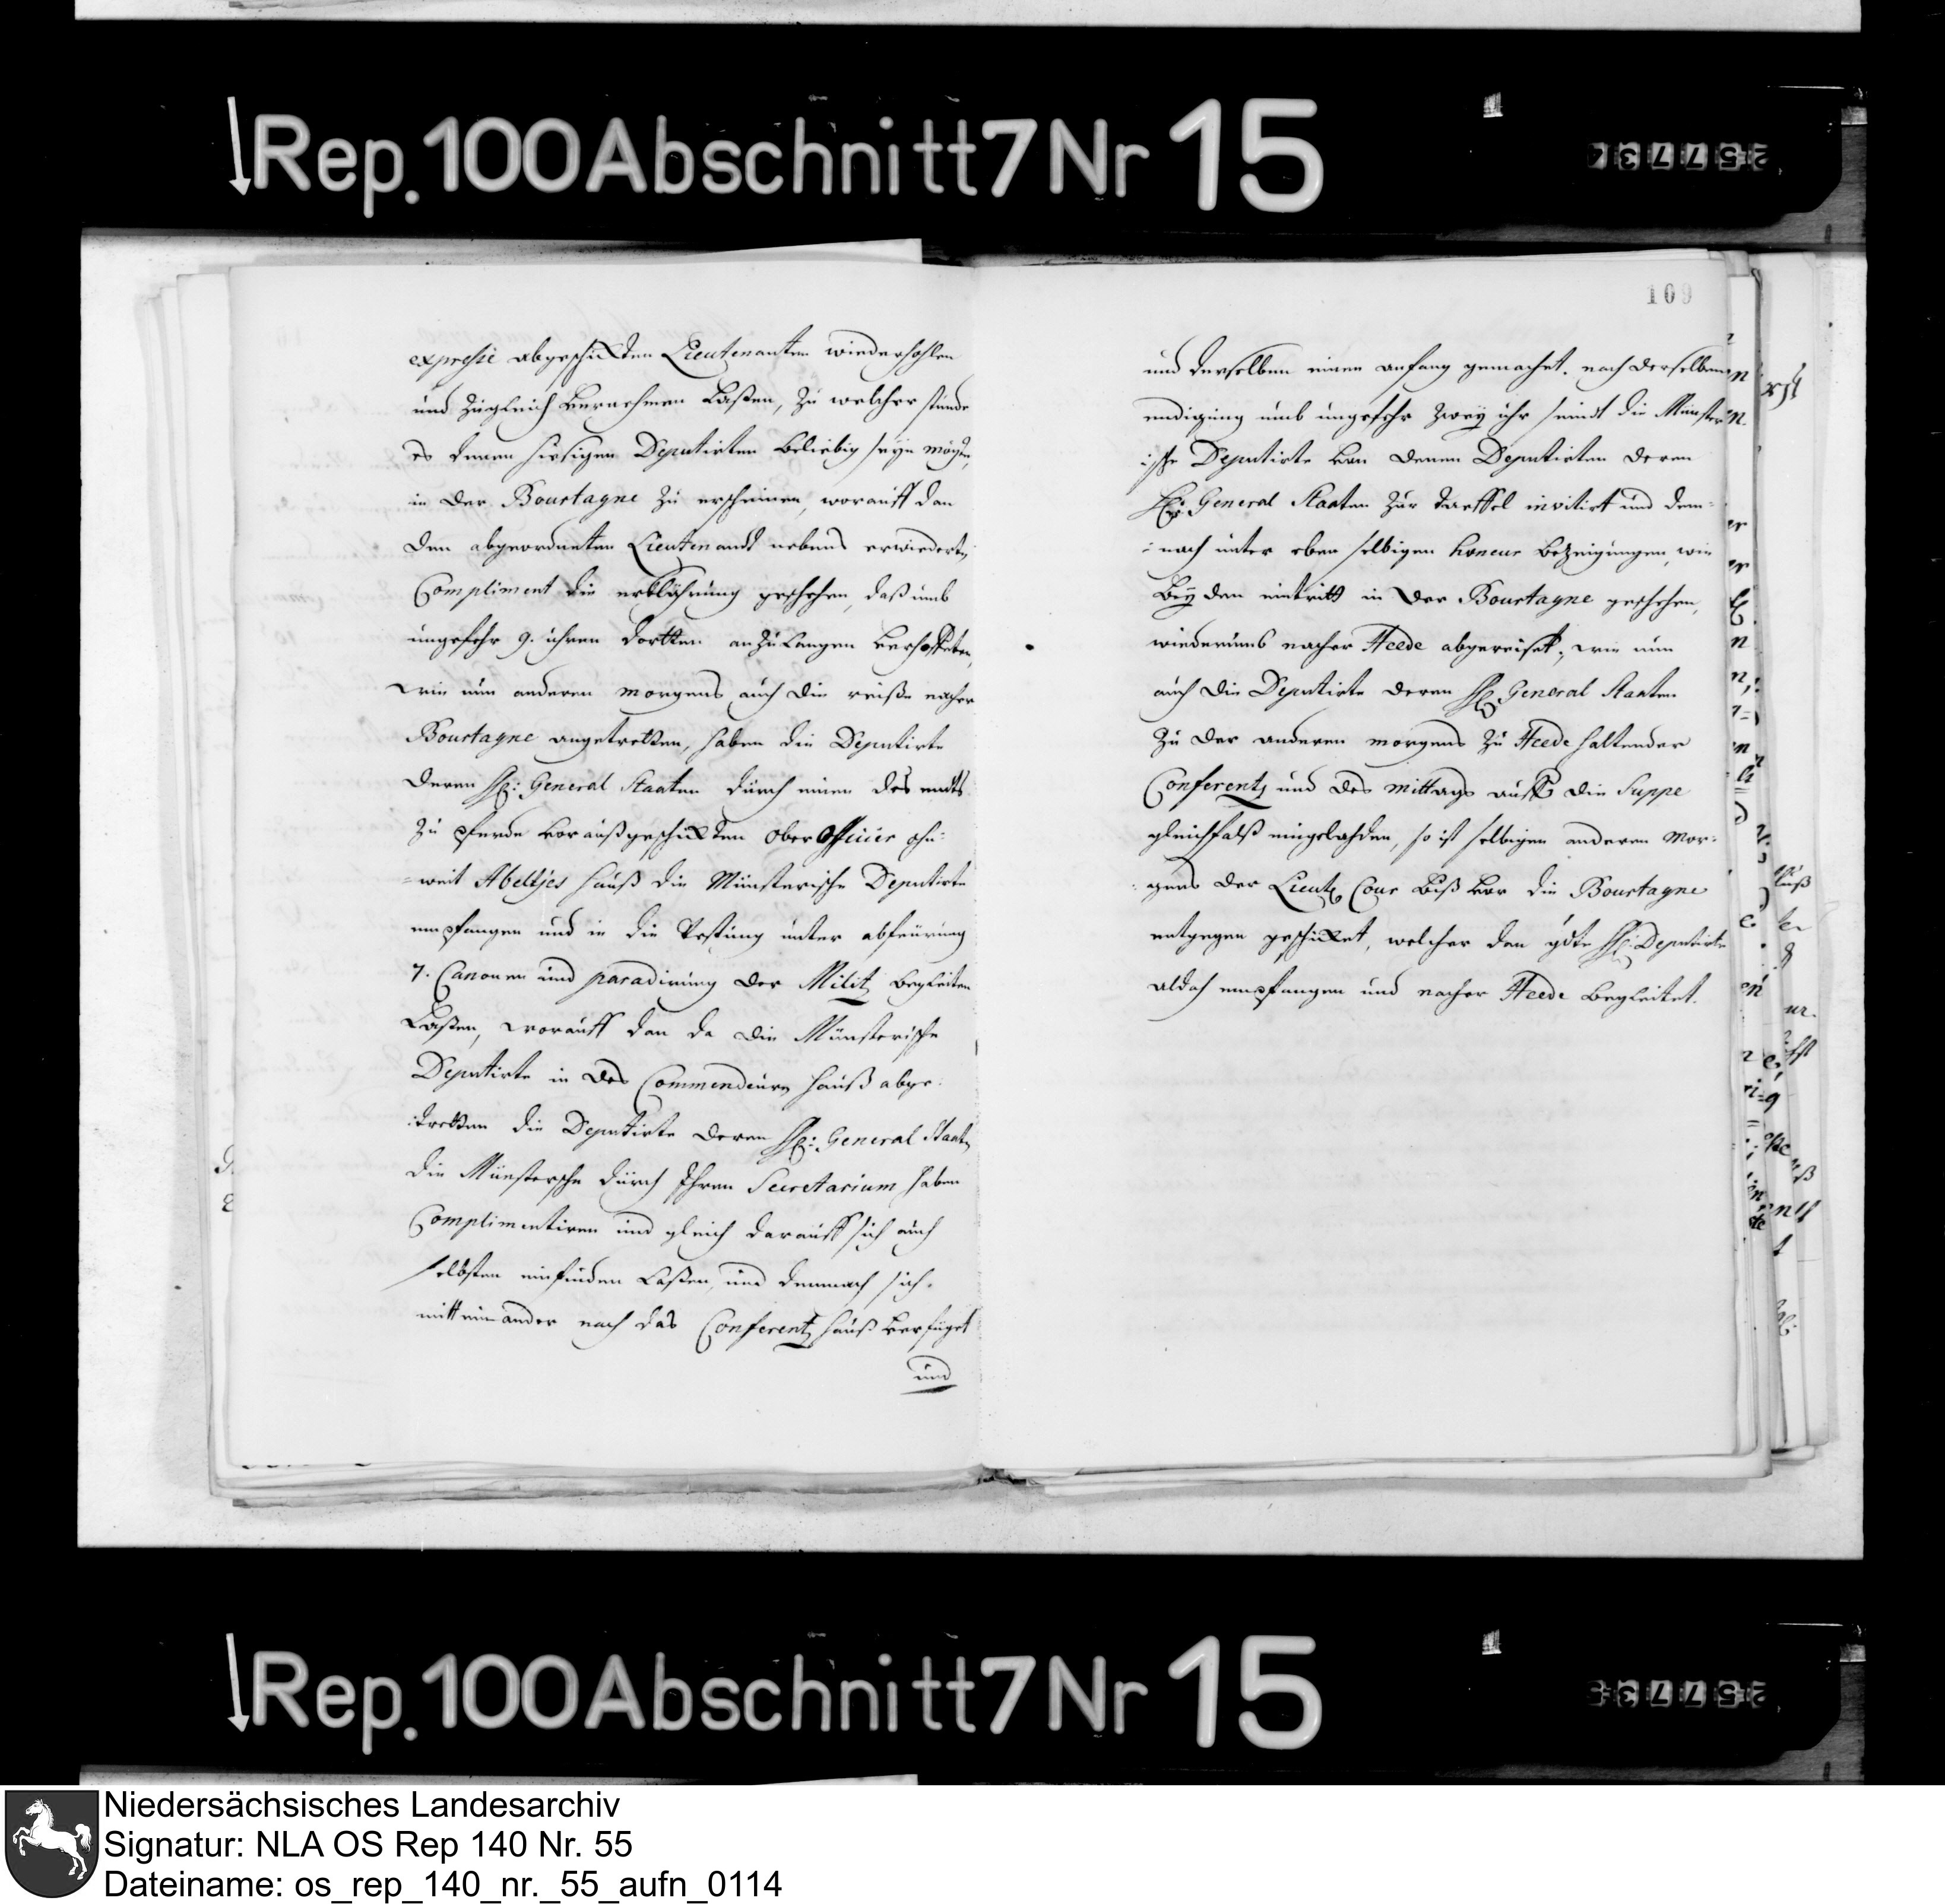 Rep. 100 Abschnitt 7 Nr 15
109
expresse abgeschickten Lieutenanten wiederhohlen
und zugleich vernehmen laßen, zu welcher stunde
es denen hiesigen Deputirten beliebig seyn mögte,
in der Bourtagne zu erscheinen, worauff dan
den abgeordneten Lieutenandt nebens erwiederten
Compliment die erklährung geschehen, daß umb
ungefehr 9. uhren dortten anzulangen verhoffeten,
wie nun anderen morgens auch die reiße nacher
Bourtagne angetretten, haben die Deputirte
deren HH: General Staaten durch einen des endts
zu pferde vorauß geschickten Ober Officier ohn-
=weit Abeltjes hauß die Münsterische Deputirte
empfangen und in die Vestung unter abfeurung
7. Canonen und paradirung der Militz begleiten
laßen, worauff dan da die Münsterische
Deputirte in des Commendeurn hauß abge-
:tretten die Deputirte deren HH: General Staaten
die Münstersche durch Ihren Secretarium haben
Complimentiren und gleich darauff sich auch
selbsten einfinden laßen, und demnach sich
mitteinander nach das Conferentz hauß verfüget
und
und derselben einen anfang gemachet. nach derselben
endigung umb ungefehr zwey uhr seindt die Münster-
ische Deputirte von denen Deputirten deren
HH: General Staaten zur taeffel invitirt und dem-
:nach unter eben selbigen honeur bezeigungen, wie
bey den eintritt in der Bourtagne geschehen,
wiederumb nacher Heede abgereiset; wie nun
auch die Deputirte deren HH: General Staaten
zu der anderen morgens zu Heede haltender
Conferentz und des mittags auff die Suppe
gleichfalß eingelahden, so ist selbigen anderen Mor-
:gens der Lieut: Cour biß vor die Bourtagne
entgegen geschicket, welcher den gdte HH: Deputirte
aldah empfangen und nacher Heede begleitet.
Rep. 100 Abschnitt 7 Nr 15
Niedersächsisches Landesarchiv
Signatur: NLA OS Rep 140 Nr. 55
Dateiname: os_rep_140_nr._55_aufn_0114